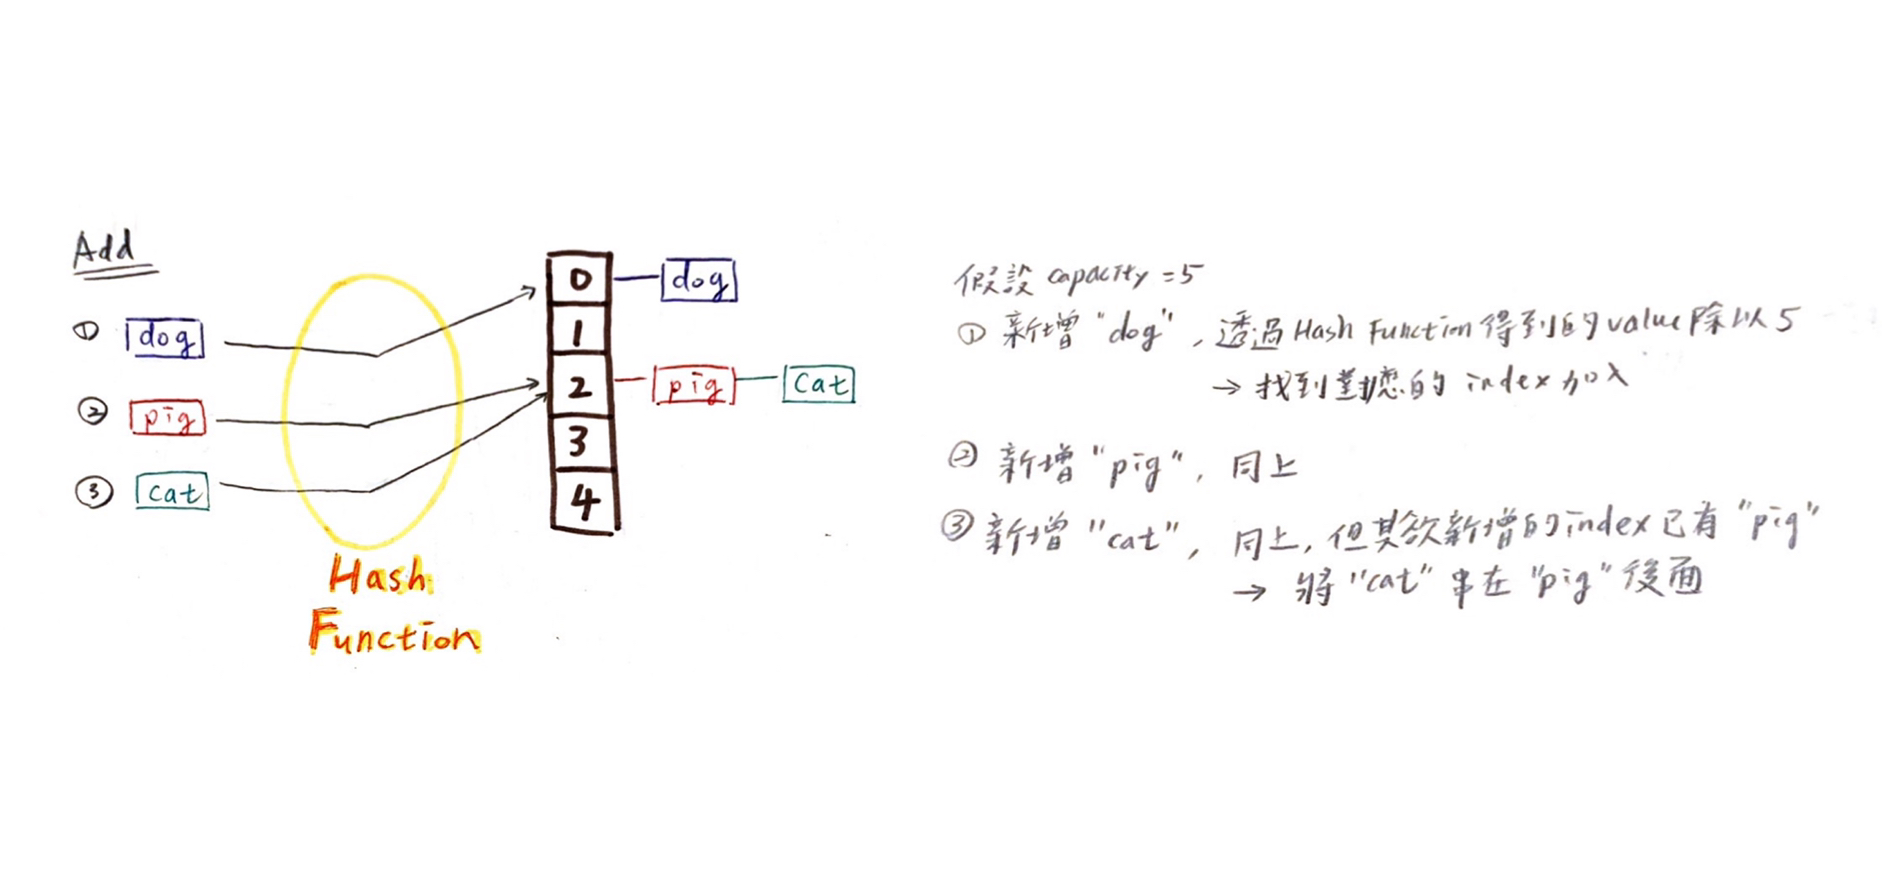 Add
① dog
② pig
③ cat
Hash
Function
0 dog
1
2 pig cat
3
4
假設 capacity = 5
① 新增 "dog", 透過 Hash Function 得到的 value 除以 5
→ 找到對應的 index 加入
② 新增 "pig", 同上
③ 新增 "cat", 同上, 但其欲新增的 index 已有 "pig"
→ 將 "cat" 串在 "pig" 後面